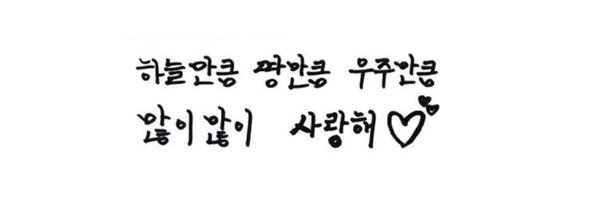 하늘만큼 땅만큼 우주만큼
많이많이 사랑해♡